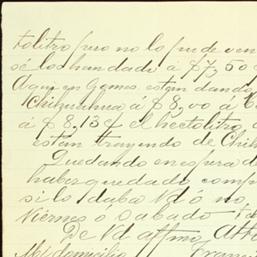 tolitro pero no lo pude ven
sé los han dado á $7,50
Aqui en Gomez estan dando
Chihuahua á $8,00 á
á $8,15 ¢ el hectolitro
estan trayendo de Chih
Quedando en espera d
haber quedado comp
si lo daba Ud ó no
Viernes ó Sabado
De Ud affmo Att
Mi domicilio Francis